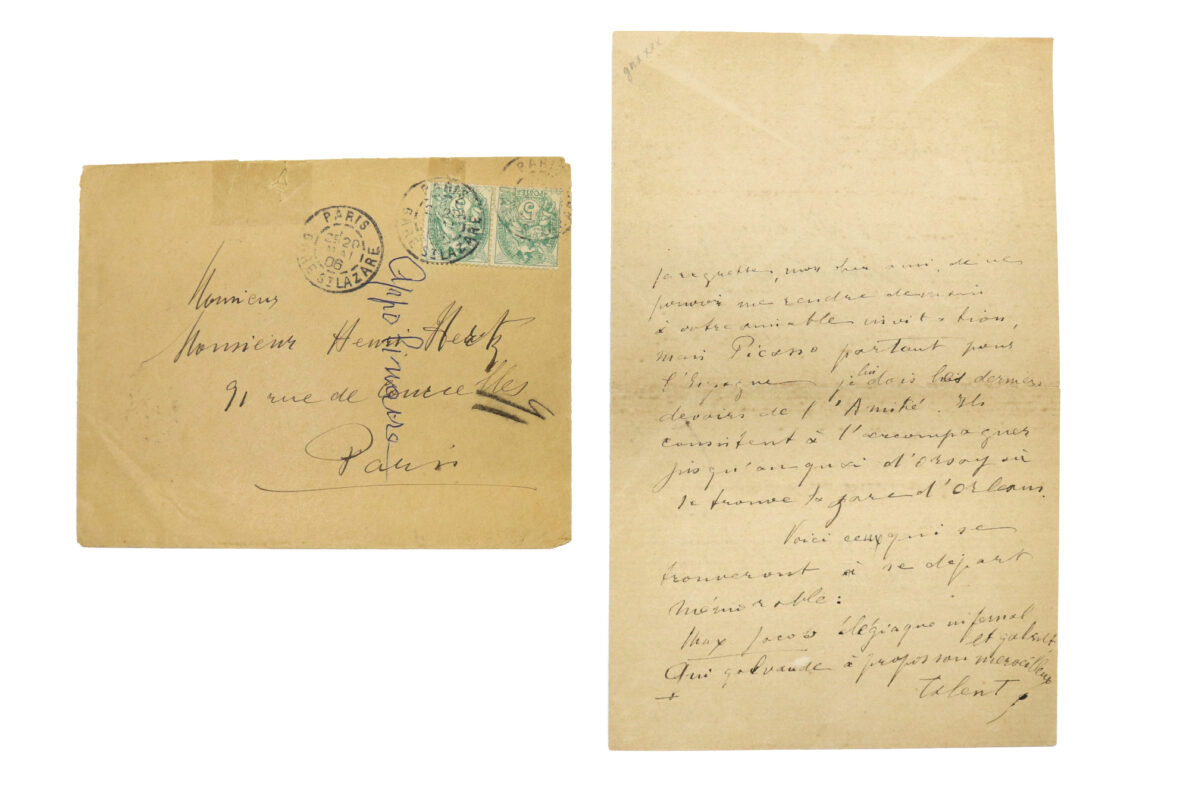 PARIS
20
06
GARE ST LAZARE
PARIS
GARE ST LAZARE
PARIS
POSTES
5
Apollinaire
Monsieur
Monsieur Henri Hertz
91 rue de Courcelles
Paris
Je regrette, mon cher ami, de ne
pouvoir me rendre demain
à votre aimable invitation,
mais Picasso partant pour
l'Espagne je lui dois les derniers
devoirs de l'Amitié. Ils
consistent à l'accompagner
jusqu'au quai d'Orsay où
se trouve la gare d'Orléans.
Voici ceux qui se
trouveront à se départ
mémorable:
Max Jacob élégiaque infernal
et
Qui galvaude à propos son merveilleux
talent;